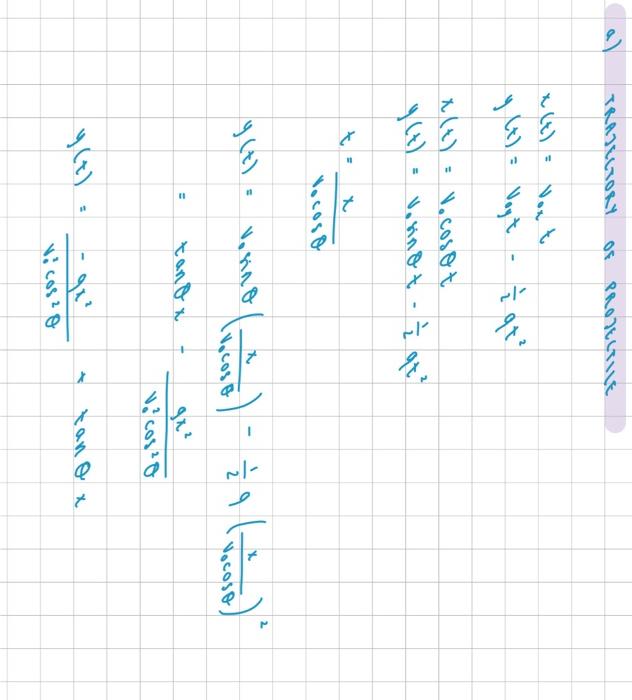 a) TRAJECTORY OF PROJECTILE
x(t) = v₀ₓ t
y(t) = v₀ᵧt - ½ gt²
x(t) = v₀cosθ t
y(t) = v₀sinθ t - ½ gt²
t = x / v₀cosθ
y(t) = v₀sinθ (x / v₀cosθ) - ½ g (x / v₀cosθ)²
= tanθ x - gx² / v₀²cos²θ
y(t) = -gx² / v₀²cos²θ + tanθ x